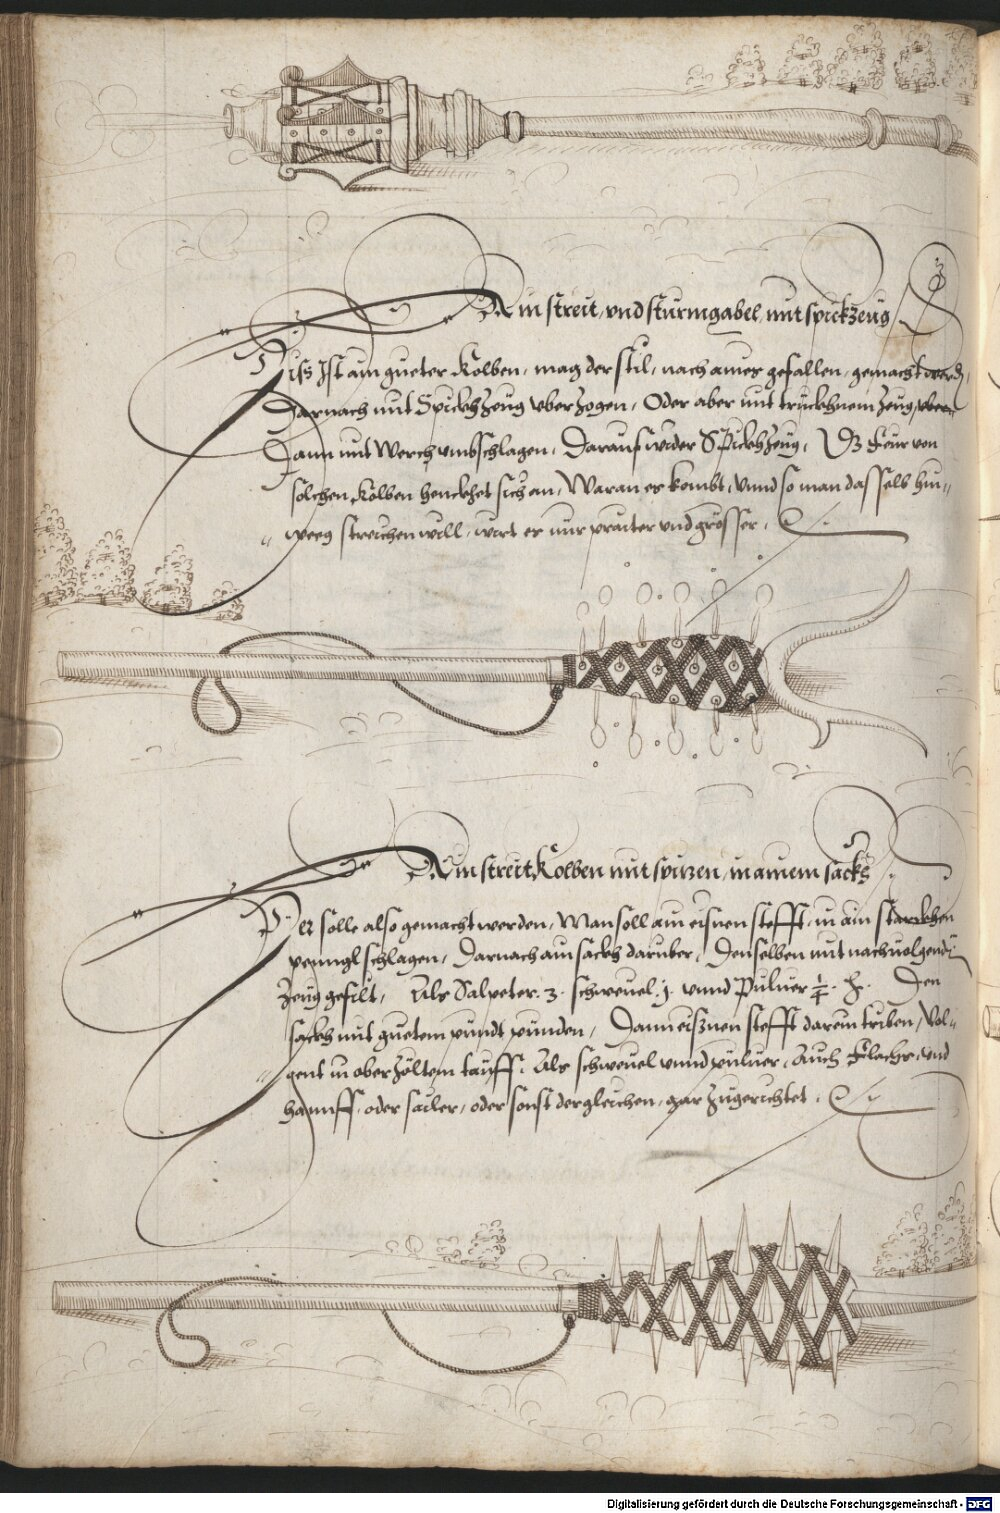 Ain streit, vnd sturmgabel, mit spickzeug
Diss Ist ain gueter Kolben, mag der stil, nach aines gefallen, gemacht werdn,
Darnach mit Spickhzeug vberzogen, Oder aber mit truckhnem zeug, vber¬
Dann mit Werch vmbschlagen, Darauf wider Spickhzeug, Dz Feur von
solchen Kolben henckhet sich an, Waran es kombt, Vnnd so man dasselb hin¬
weeg streichen will, wirt es nur praiter vnd grösser.
Ain streit Kolben mit spitzen, in ainem sackh
Der solle also gemacht werden, Man soll ain eisnen stefft, in ain starckhen
penngl schlagen, Darnach ain sackh daruber, Denselben mit nachuolgendn
Zeug gefilt, Als Salpeter .3. schweuel .j. vnnd Puluer ¼.
Den
sackh mit guetem pundt pinden, Dann eisznen stefft darein triben, Vol¬
gent in oberzöltem tauff, Als schweuel vnnd puluer, Auch Flachs, vnd
hannff, oder sailer, oder sonst dergleichen, gar zugerichtet.
Digitalisierung gefördert durch die Deutsche Forschungsgemeinschaft - DFG